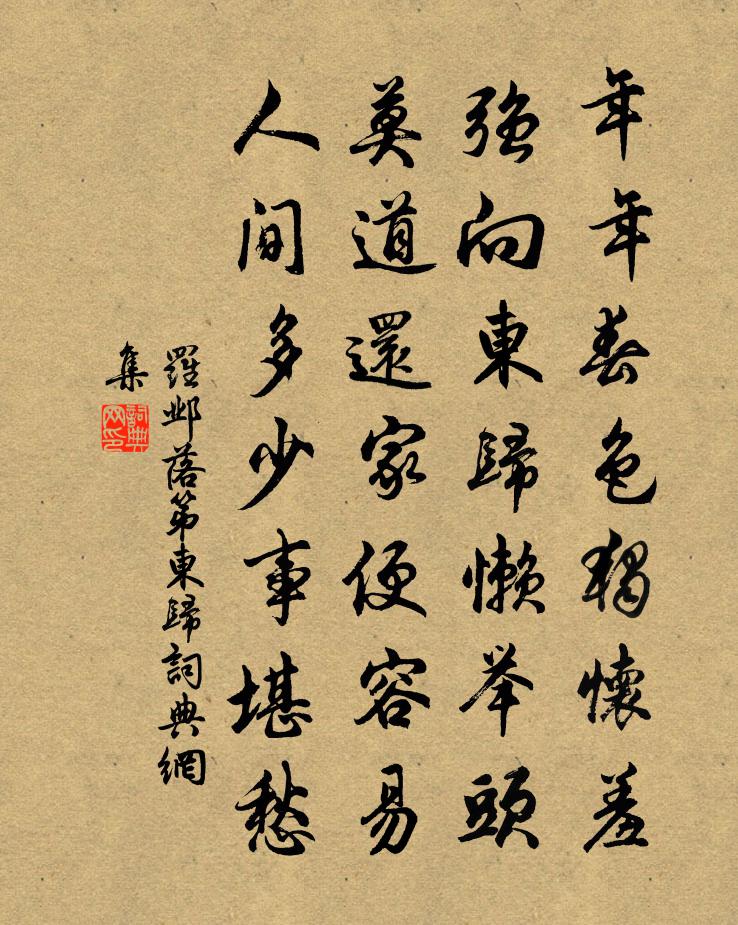 年年春色獨懷羞
強向東歸懶举頭
莫道還家便容易
人間多少事堪愁
羅邺落第東歸詞典網
集
詞典
网印